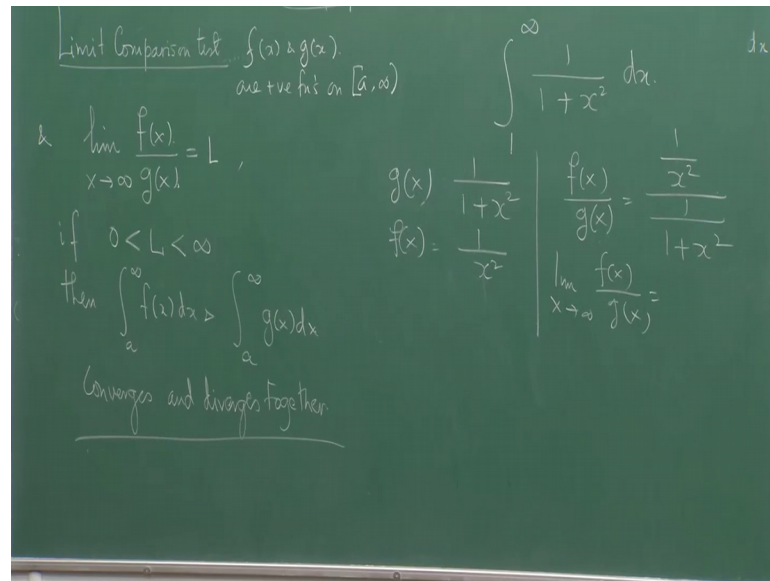 Limit Comparison test f(x) & g(x).
are +ve fn's on [a, ∞)
& lim x→∞ f(x)/g(x) = L ,
if 0 < L < ∞
then ∫_a^∞ f(x) dx & ∫_a^∞ g(x) dx
Converges and diverges together.
∫_1^∞ 1/(1 + x²) dx.
g(x) 1/(1 + x²)
f(x) = 1/x²
f(x)/g(x) = (1/x²)/(1/(1 + x²))
lim x→∞ f(x)/g(x) =
dx